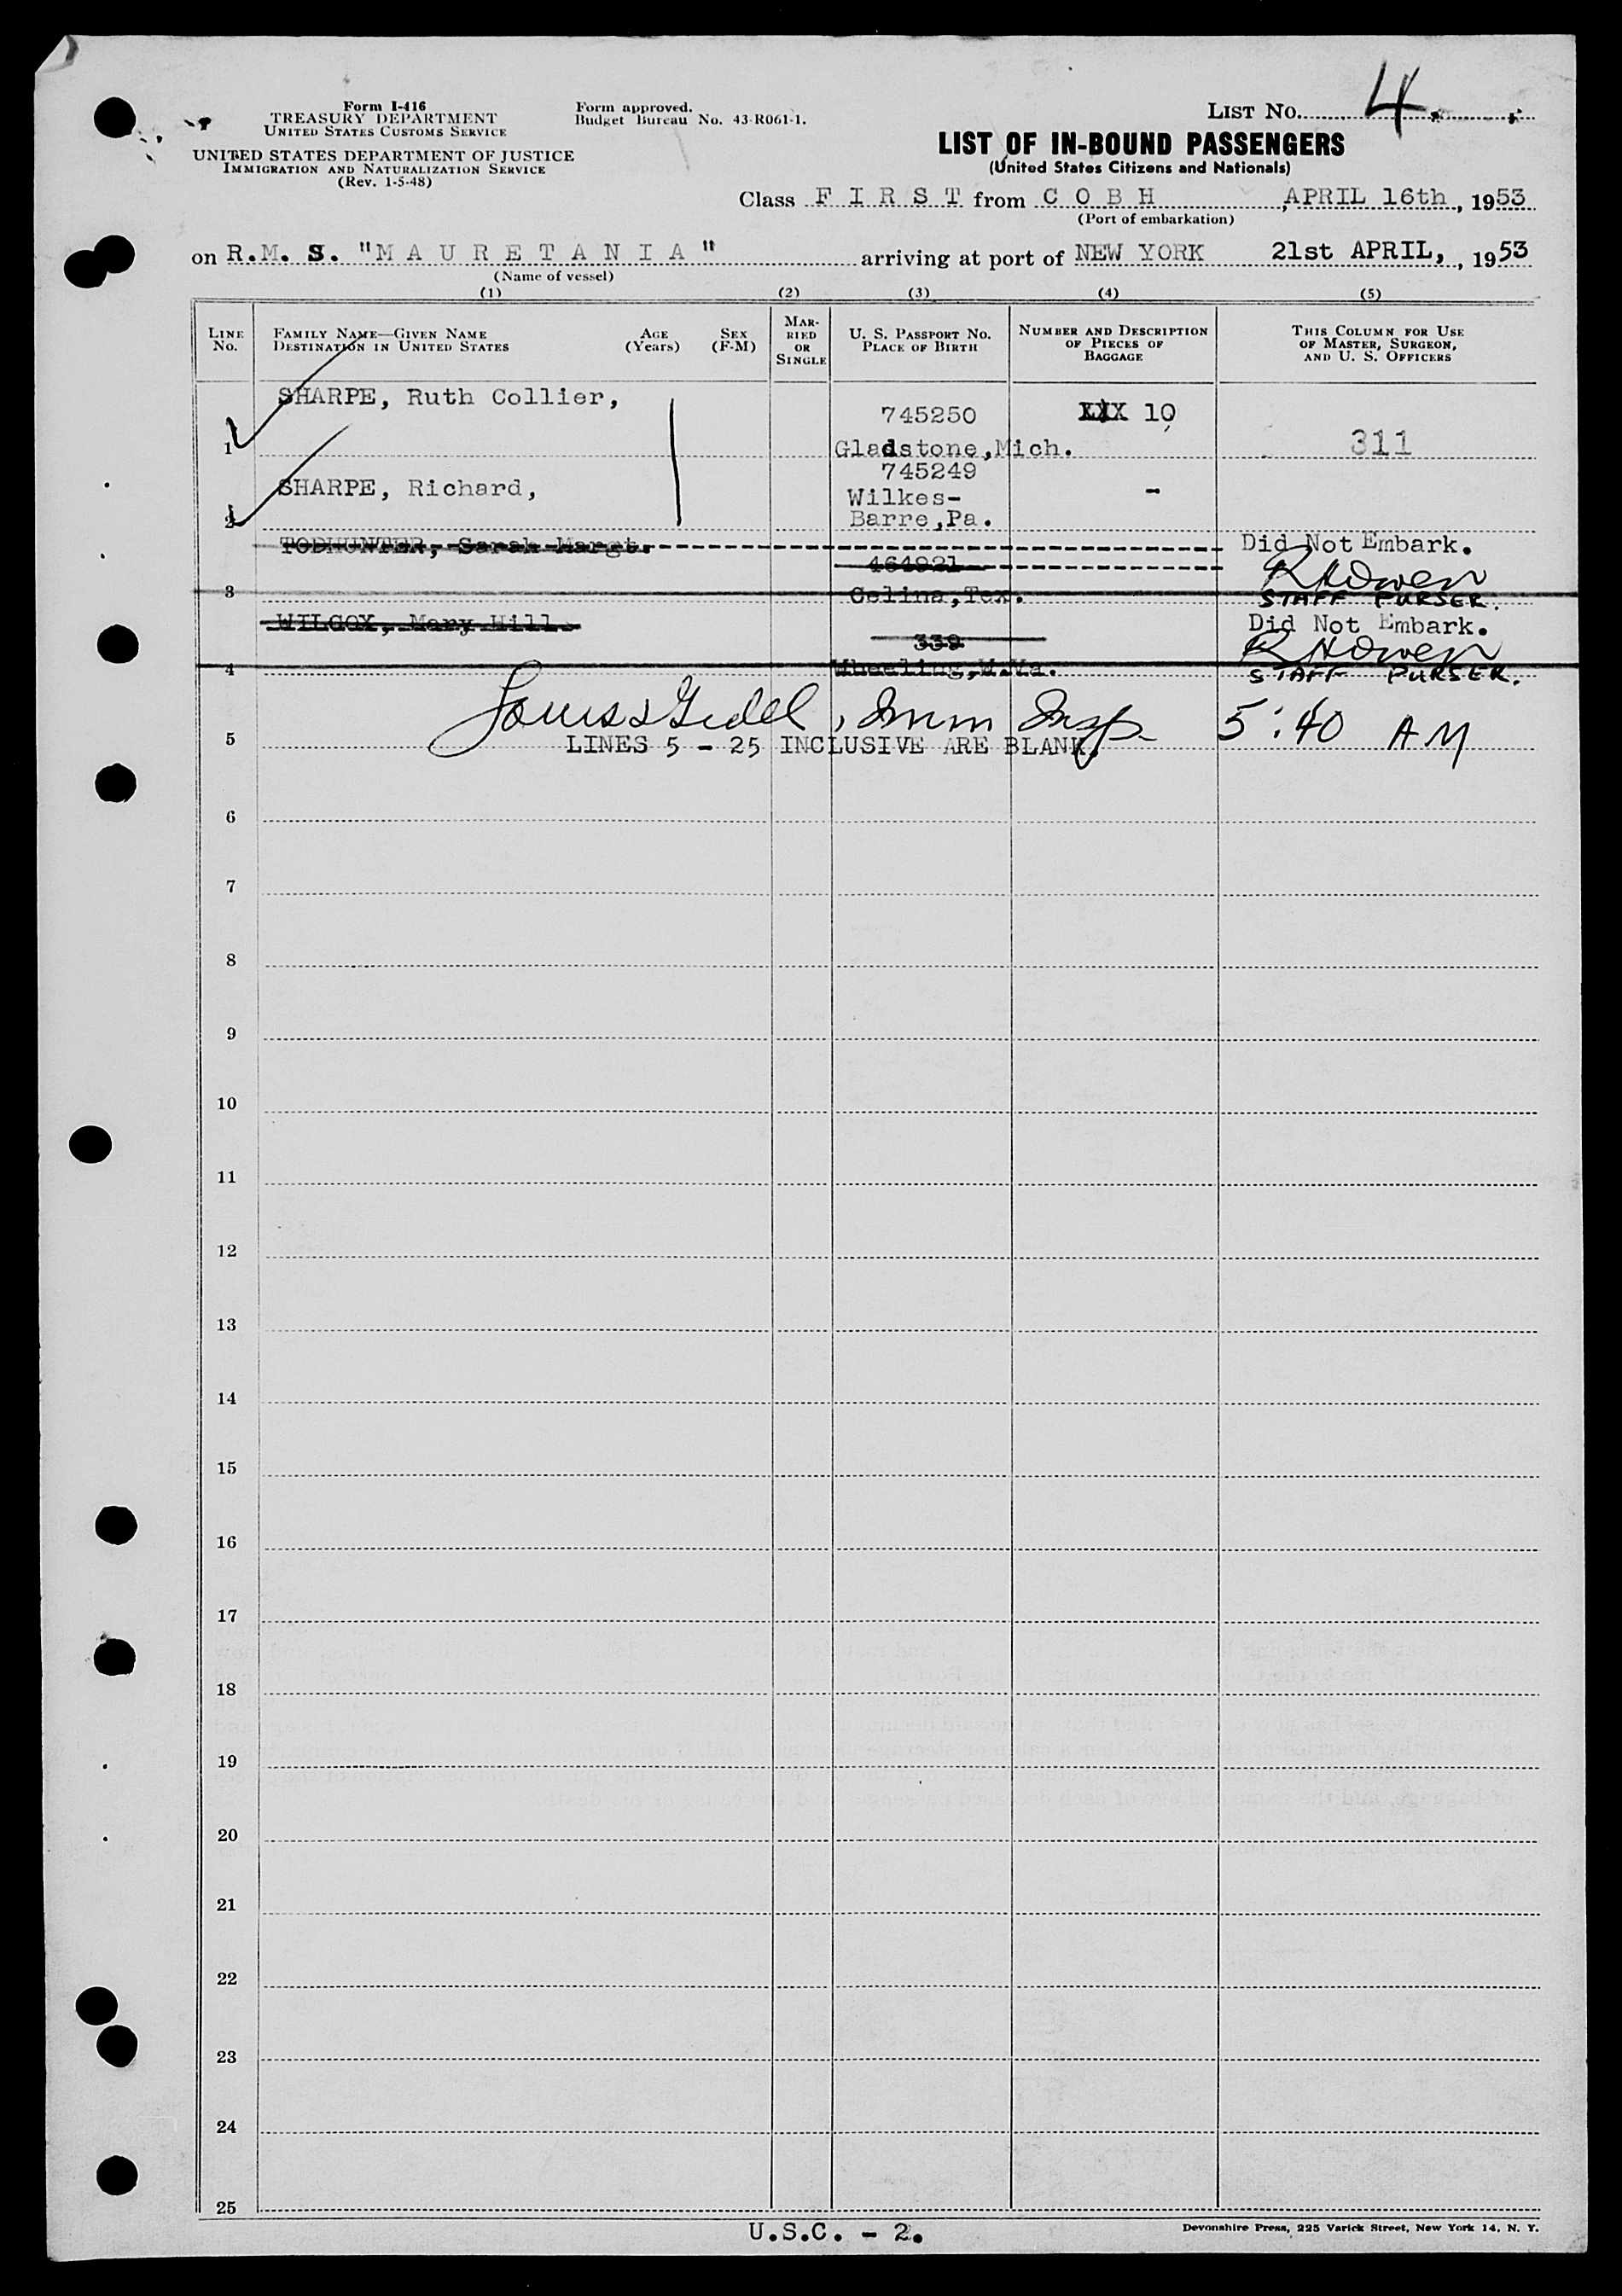 Form I-416
TREASURY DEPARTMENT
UNITED STATES CUSTOMS SERVICE
UNITED STATES DEPARTMENT OF JUSTICE
IMMIGRATION AND NATURALIZATION SERVICE
(Rev. 1-5-48)
Form approved.
Budget Bureau No. 43-R061-1.
LIST No. 4.
LIST OF IN-BOUND PASSENGERS
(United States Citizens and Nationals)
Class F I R S T from C O B H , APRIL 16th, 1953
(Port of embarkation)
on R.M.S. "M A U R E T A N I A" arriving at port of NEW YORK 21st APRIL, , 1953
(Name of vessel)
(1) (2) (3) (4) (5)
LINE No. FAMILY NAME—GIVEN NAME DESTINATION IN UNITED STATES AGE (Years) SEX (F-M) MARRIED OR SINGLE U. S. PASSPORT No. PLACE OF BIRTH NUMBER AND DESCRIPTION OF PIECES OF BAGGAGE THIS COLUMN FOR USE OF MASTER, SURGEON, AND U. S. OFFICERS
SHARPE, Ruth Collier,
745250 10
1 Gladstone,Mich. 311
745249
SHARPE, Richard, -
Wilkes-
2 Barre,Pa.
TODHUNTER, Sarah Margt. Did Not Embark.
464921 RHOwen
3 Celina,Tex. STAFF PURSER.
WILCOX, Mary Hill. Did Not Embark.
339 RHOwen
4 Wheeling,W.Va. STAFF PURSER.
, Imm Insp 5:40 AM
5 LINES 5 - 25 INCLUSIVE ARE BLANK.
6
7
8
9
10
11
12
13
14
15
16
17
18
19
20
21
22
23
24
25
U.S.C. - 2.
Devonshire Press, 225 Varick Street, New York 14, N. Y.